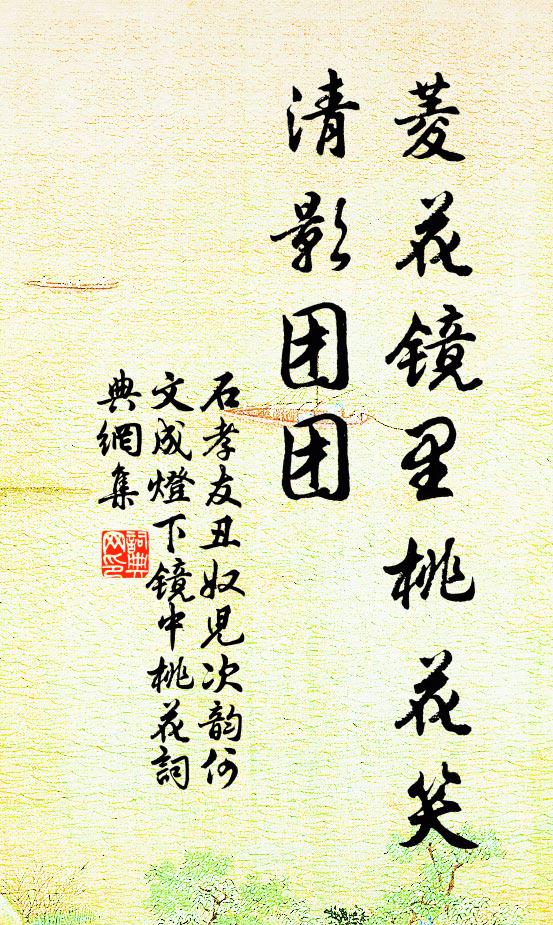 菱花镜里桃花笑
清影团团
石孝友丑奴儿次韵何
文成燈下镜中桃花詞
典網集
詞典
网印